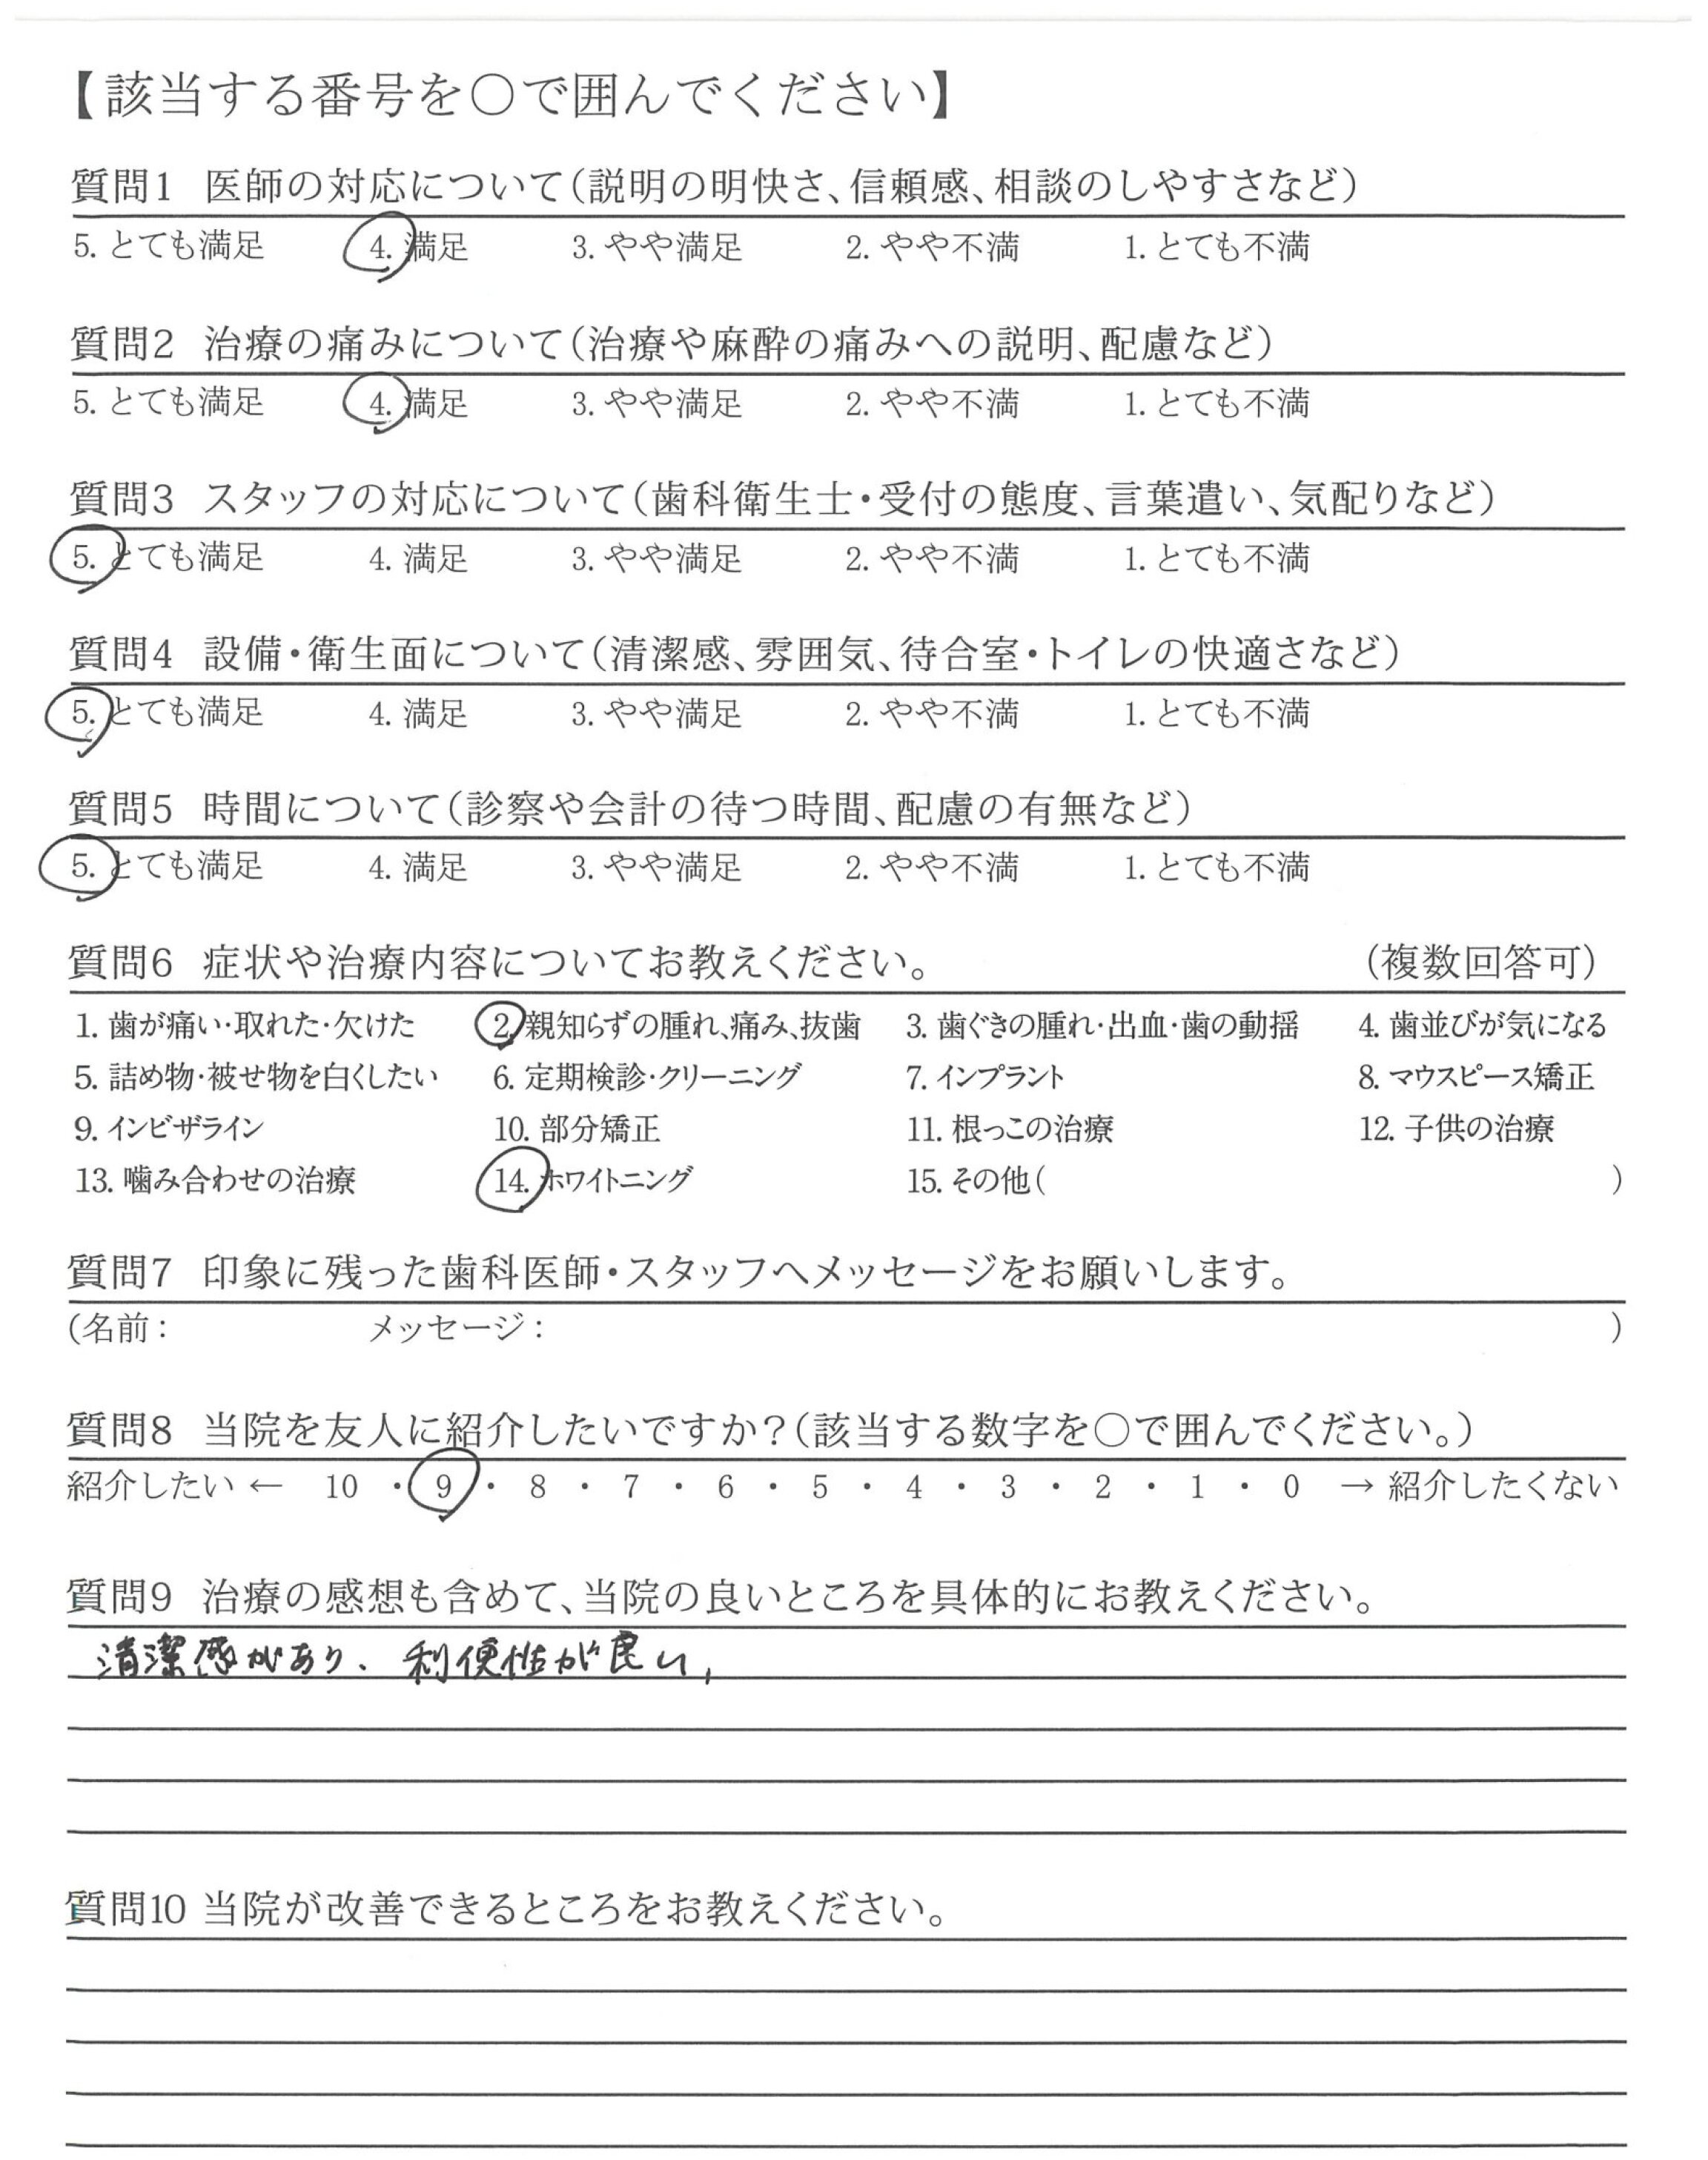 【該当する番号を○で囲んでください】
質問1 医師の対応について(説明の明快さ、信頼感、相談のしやすさなど)
5. とても満足 4. 満足 3. やや満足 2. やや不満 1. とても不満
質問2 治療の痛みについて(治療や麻酔の痛みへの説明、配慮など)
5. とても満足 4. 満足 3. やや満足 2. やや不満 1. とても不満
質問3 スタッフの対応について(歯科衛生士・受付の態度、言葉遣い、気配りなど)
5. とても満足 4. 満足 3. やや満足 2. やや不満 1. とても不満
質問4 設備・衛生面について(清潔感、雰囲気、待合室・トイレの快適さなど)
5. とても満足 4. 満足 3. やや満足 2. やや不満 1. とても不満
質問5 時間について(診察や会計の待つ時間、配慮の有無など)
5. とても満足 4. 満足 3. やや満足 2. やや不満 1. とても不満
質問6 症状や治療内容についてお教えください。 (複数回答可)
1. 歯が痛い・取れた・欠けた 2. 親知らずの腫れ、痛み、抜歯 3. 歯ぐきの腫れ・出血・歯の動揺 4. 歯並びが気になる
5. 詰め物・被せ物を白くしたい 6. 定期検診・クリーニング 7. インプラント 8. マウスピース矯正
9. インビザライン 10. 部分矯正 11. 根っこの治療 12. 子供の治療
13. 噛み合わせの治療 14. ホワイトニング 15. その他( )
質問7 印象に残った歯科医師・スタッフへメッセージをお願いします。
(名前: メッセージ: )
質問8 当院を友人に紹介したいですか?(該当する数字を○で囲んでください。)
紹介したい ← 10 ・ 9 ・ 8 ・ 7 ・ 6 ・ 5 ・ 4 ・ 3 ・ 2 ・ 1 ・ 0 → 紹介したくない
質問9 治療の感想も含めて、当院の良いところを具体的にお教えください。
清潔感があり、利便性が良い,
質問10 当院が改善できるところをお教えください。